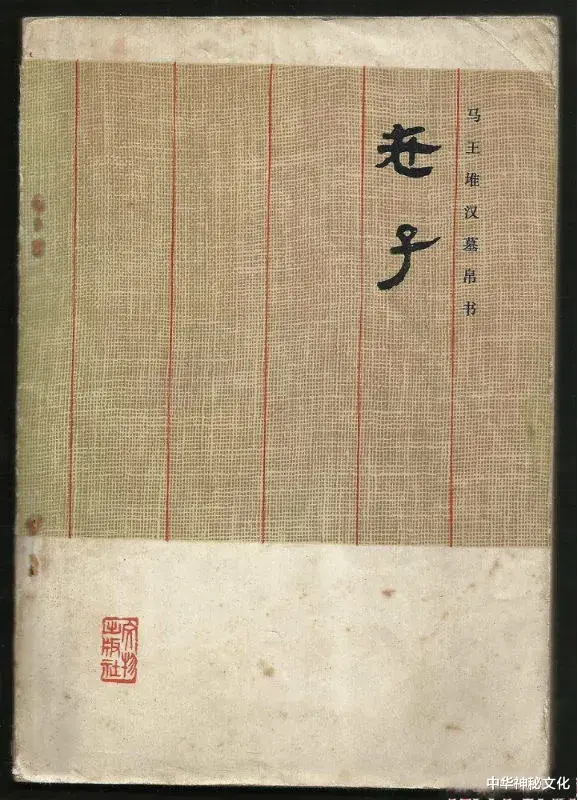 马王堆汉墓帛书
老子
文物
出版社
中华神秘文化